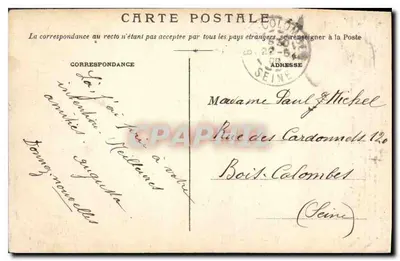 CARTE POSTALE
La correspondance au recto n'étant pas acceptée par tous les pays étrangers, se renseigner à la Poste
CORRESPONDANCE
ADRESSE
SEINE
à votre
intention
amitiés
Augusta
Donnez nouvelles
Madame Paul Michel
Rue des Cardonnets 120
Bois-Colombes
(Seine)
CPARAMA